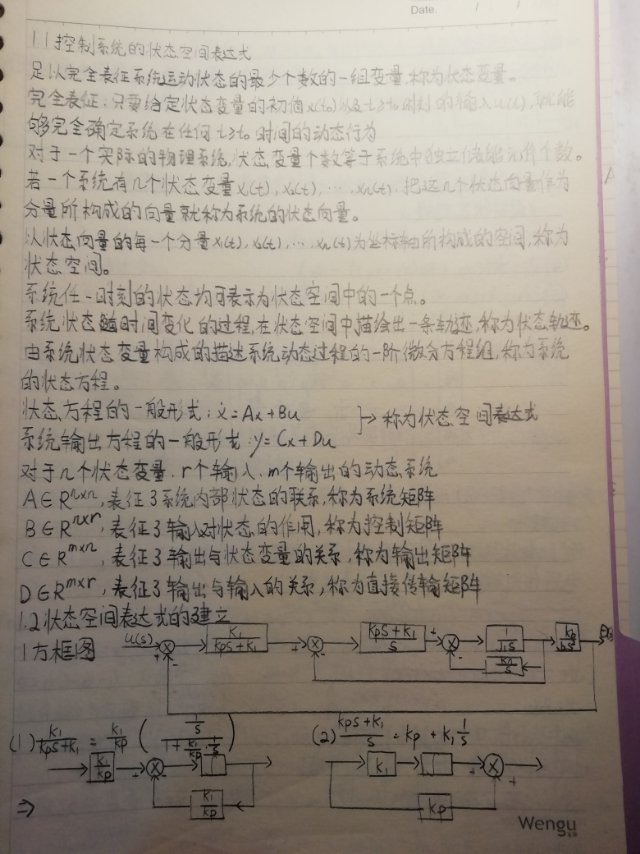 Date. / /
1.1 控制系统的状态空间表达式
足以完全表征系统运动状态的最少个数的一组变量,称为状态变量。
完全表征:只要给定状态变量的初值x(t₀)以及t≥t₀时刻的输入u(t),就能
够完全确定系统在任何t≥t₀时间的动态行为
对于一个实际的物理系统,状态变量个数等于系统中独立储能元件个数。
若一个系统有n个状态变量x₁(t),x₂(t),…,xₙ(t),把这n个状态向量作为
分量所构成的向量就称为系统的状态向量。
以状态向量的每一个分量x₁(t),x₂(t),…,xₙ(t)为坐标轴所构成的空间,称为
状态空间。
系统任一时刻的状态均可表示为状态空间中的一个点。
系统状态随时间变化的过程,在状态空间中描绘出一条轨迹,称为状态轨迹。
由系统状态变量构成的描述系统动态过程的一阶微分方程组,称为系统
的状态方程。
状态方程的一般形式:ẋ=Ax+Bu
}→称为状态空间表达式
系统输出方程的一般形式:y=Cx+Du
对于n个状态变量、r个输入、m个输出的动态系统
A∈Rⁿˣⁿ,表征了系统内部状态的联系,称为系统矩阵
B∈Rⁿˣʳ,表征了输入对状态的作用,称为控制矩阵
C∈Rᵐˣⁿ,表征了输出与状态变量的关系,称为输出矩阵
D∈Rᵐˣʳ,表征了输出与输入的关系,称为直接传输矩阵
1.2状态空间表达式的建立
1方框图 u(s) + - K₁/(KpS+K₁) + - (KpS+K₁)/S + - 1/(J₁S)
(1) K₁/(KpS+K₁) = K₁/Kp ( (1/S)/(1+K₁/Kp·1/S) ) (2) (KpS+K₁)/S = Kp+K₁ 1/S
K₁/Kp + - ∫ K₁ ∫ + +
⇒ K₁/Kp Kp
Wengu